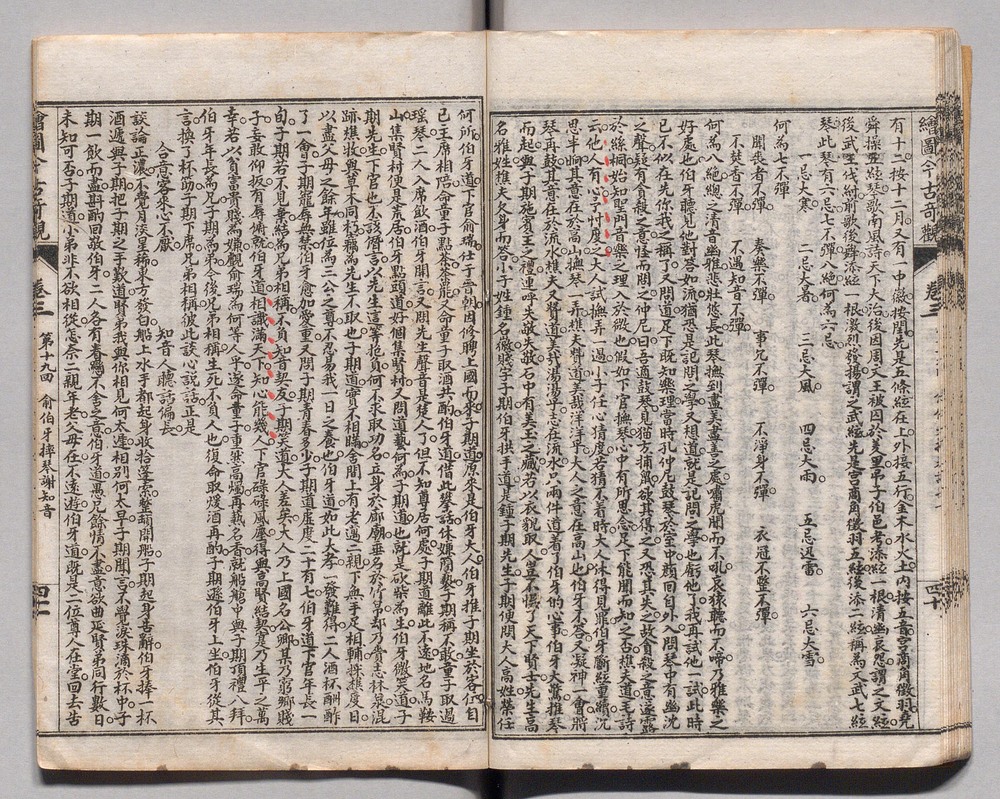 繪圖今古奇觀 卷三 四十
有十二按十二月又有一中徽按閏先是五條絃在上外按五行金木水火土內按五音宮商角徵羽堯
舜操五絃琴歌南風詩天下大治後因周文王被囚於羑里弔子伯邑考添絃一根清幽哀怨謂之文絃
後武王伐紂前歌後舞添絃一根激烈發揚謂之武絃先是宮商角徵羽五絃後添二絃稱為文武七絃
琴此琴有六忌七不彈八絕何為六忌
一忌大寒 二忌大暑 三忌大風 四忌大雨 五忌迅雷 六忌大雪
何為七不彈
聞喪者不彈 奏樂不彈 事冗不彈 不淨身不彈 衣冠不整不彈
不焚香不彈 不遇知音不彈
何為八絕總之清奇幽雅悲壯悠長此琴撫到盡美盡善之處嘯虎聞而不吼哀猿聽而不啼乃雅樂之
好處也伯牙聽見他對答如流猶恐是記問之學又想道就是記問之學也虧他了我再試他一試此時
已不似在先你我之稱了又問道足下既知樂理當時孔仲尼鼓琴於室中顏回自外入聞琴中有幽沈
之聲疑有貪殺之意怪而問之仲尼曰吾適鼓琴見猫方捕鼠欲其得之又恐其失之故貪殺之意遂露
於絲桐始知聖門音樂之理入於微也假如下官撫琴心中有所思念足下能聞而知之否樵夫道毛詩
云他人有心予忖度之大人試撫弄一過小子任心猜度若猜不着時大人休得見罪伯牙斷絃重續沉
思半晌其意在於高山撫琴一弄樵夫讚道美哉洋洋乎大人之意在高山也伯牙不答又凝神一會將
琴再鼓其意在於流水樵夫又贊道美哉湯湯乎志在流水只兩件道着了伯牙的心事伯牙大驚推琴
而起與子期施賓主之禮連呼失敬失敬石中有美玉之藏若以衣貌取人豈不悞了天下賢士先生高
名雅姓樵夫欠身而答小子姓鍾名徽賤字子期伯牙拱手道是鍾子期先生子期便問大人高姓榮任
何所伯牙道下官俞瑞仕于晉朝因修聘上國而來子期道原來是伯牙大人伯牙推子期坐於客位自
已主席相陪命童子點茶茶罷又命童子取酒共酌伯牙道借此攀話休嫌簡褻子期稱不敢童子取過
瑤琴二人入席飲酒伯牙開言又問先生聲音是楚人了但不知尊居何處子期道離此不遠地名馬鞍
山集賢村便是荒居伯牙點頭道好個集賢村又問道藝何為子期道也就是砍柴為生伯牙微笑道子
期先生下官也不該僭言以先生這等抱負何不求取功名立身於廊廟垂名於竹帛却乃賫志林泉混
跡樵牧與草木同朽竊為先生不取也子期道實不相瞞舍間上有老邁二親下無手足相輔採樵度日
以盡父母之餘年雖位為三公之尊不忍易我一日之養也伯牙道如此大孝一發難得二人酒杯酬酢
了一會子期寵辱無驚伯牙愈加愛重又問子期青春多少子期道虛度二十有七伯牙道下官年長一
旬子期若不見棄結為兄弟相稱不負知音契友子期笑道大人差矣大人乃上國名公鍾某乃窮鄉賤
子安敢仰扳有辱俯就伯牙道相識滿天下知心能幾人下官碌碌風塵得與高賢結契實乃生平之萬
幸若以貧富貴賤為嫌覷俞瑞為何等人乎遂命童子重添爐火再爇名香就船艙中與子期頂禮八拜
伯牙年長為兄子期為弟今後兄弟相稱生死不負拜罷復命取煖酒再酌子期遜伯牙上坐伯牙從其
言換了杯筯子期下席兄弟相稱彼此談心說話正是
合意客來心不厭 知音人聽話偏長
談論正濃不覺月淡星稀東方發白船上水手都起身收拾篷索整備開船子期起身告辭伯牙捧一杯
酒遞與子期把子期之手歎道賢弟我與你相見何太遲相別何太早子期聞言不覺淚珠滴於杯中子
期一飲而盡斟酌回敬伯牙二人各有眷戀不舍之意伯牙道愚兄餘情不盡意欲曲延賢弟同行數日
未知可否子期道小弟非不欲相從怎奈二親年老父母在不遠遊伯牙道既是二位尊人在堂回去告
繪圖今古奇觀 卷三 第十九回 俞伯牙摔琴謝知音 四一